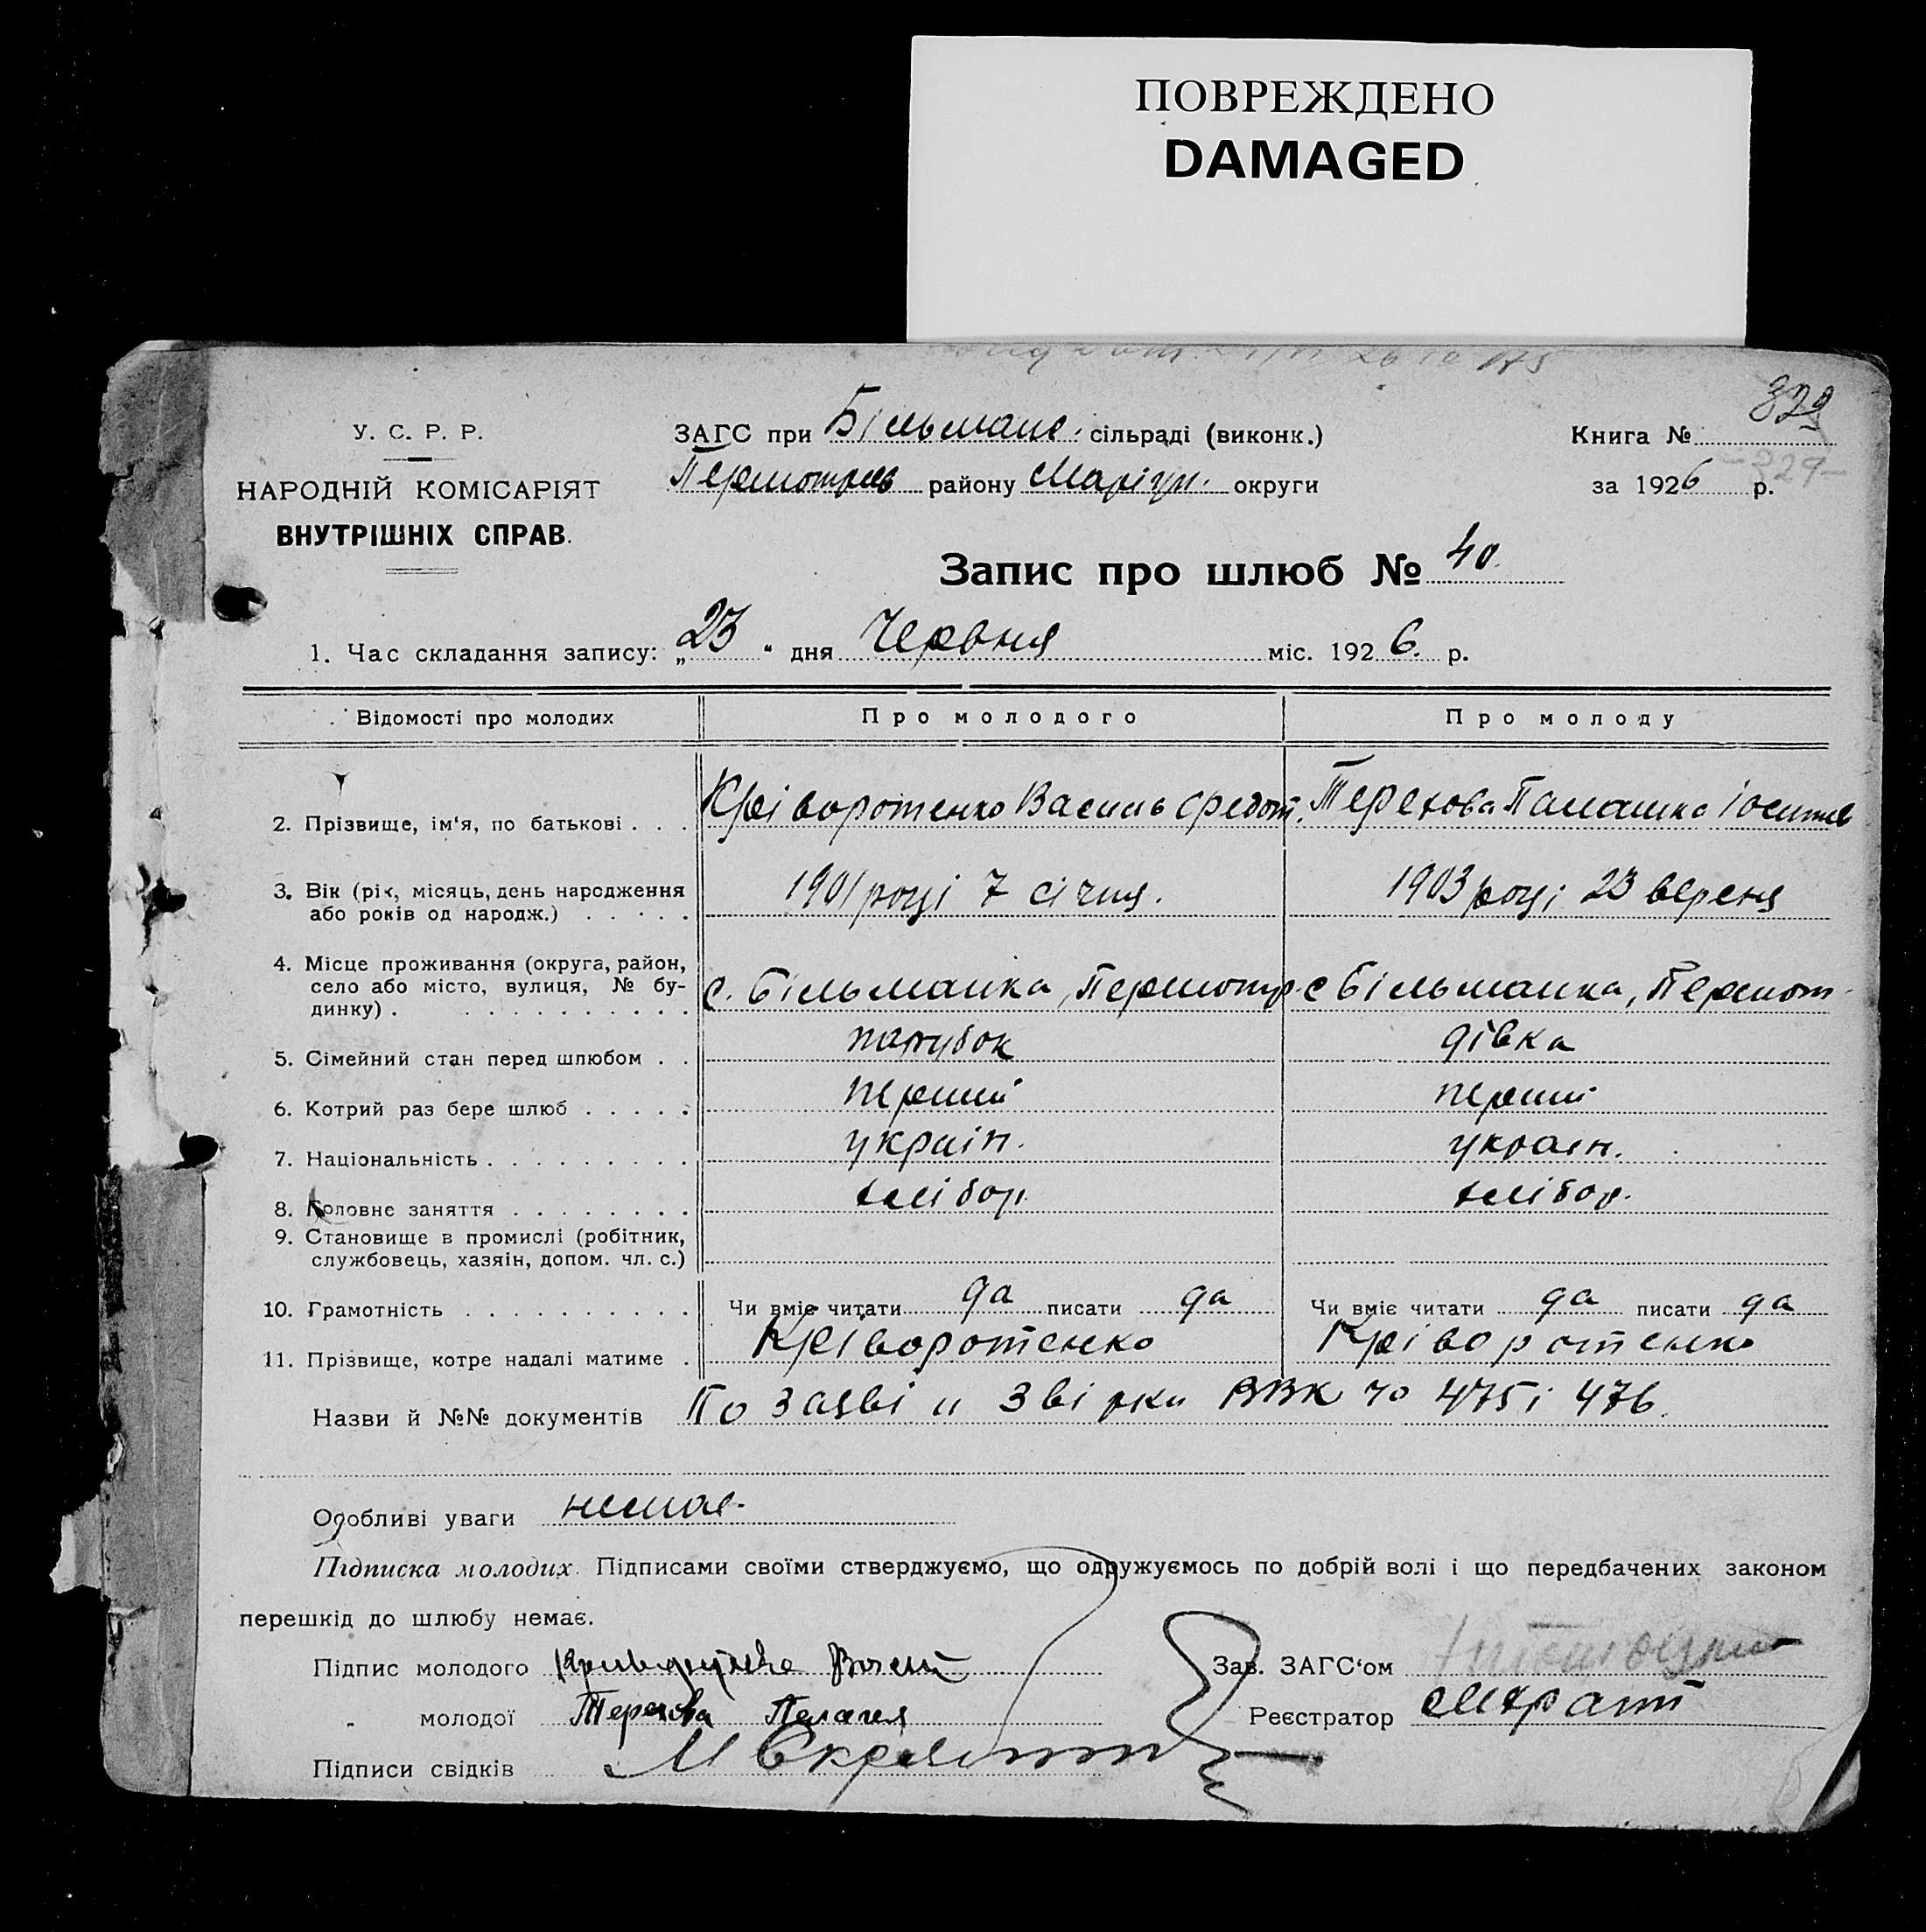 ПОВРЕЖДЕНО
DAMAGED
329
У. С. Р. Р.
НАРОДНІЙ КОМІСАРІЯТ
ВНУТРІШНІХ СПРАВ.
ЗАГС при Більманс. сільраді (виконк.)
району Маріуп. округи
Книга №
-329-
за 1926 р.
Запис про шлюб № 40
1. Час складання запису: „23" дня Червня міс. 1926. р.
Відомості про молодих Про молодого Про молоду
2. Прізвище, ім'я, по батькові . . . Кріворотенко Василь Федот. Терехова Палашка Іосипів
3. Вік (рік, місяць, день народження
або років од народж.) . . . . . 1901 році 7 січня. 1903 році 23 вересня
4. Місце проживання (округа, район,
село або місто, вулиця, № бу-
динку) . . . . . . . . . . . с. Більманка, Першотр. с Більманка, Першот.
5. Сімейний стан перед шлюбом . . парубок дівка
6. Котрий раз бере шлюб . . . . . перший перший
7. Національність . . . . . . . . . україн. україн.
8. Головне заняття . . . . . . . . хлібор. хлібор.
9. Становище в промислі (робітник,
службовець, хазяін, допом. чл. с.)
10. Грамотність . . . . . . . . . . Чи вміє читати да писати да Чи вміє читати да писати да
11. Прізвище, котре надалі матиме . Кріворотенко Кріворотенко
Назви й №№ документів По заяві и звірки ВВК 475 і 476.
Особливі уваги немає.
Підписка молодих. Підписами своїми стверджуємо, що одружуємось по добрій волі і що передбачених законом
перешкід до шлюбу немає.
Підпис молодого
Зав. ЗАГС'ом
„ молодої Терехова Пелагея
Реєстратор
Підписи свідків